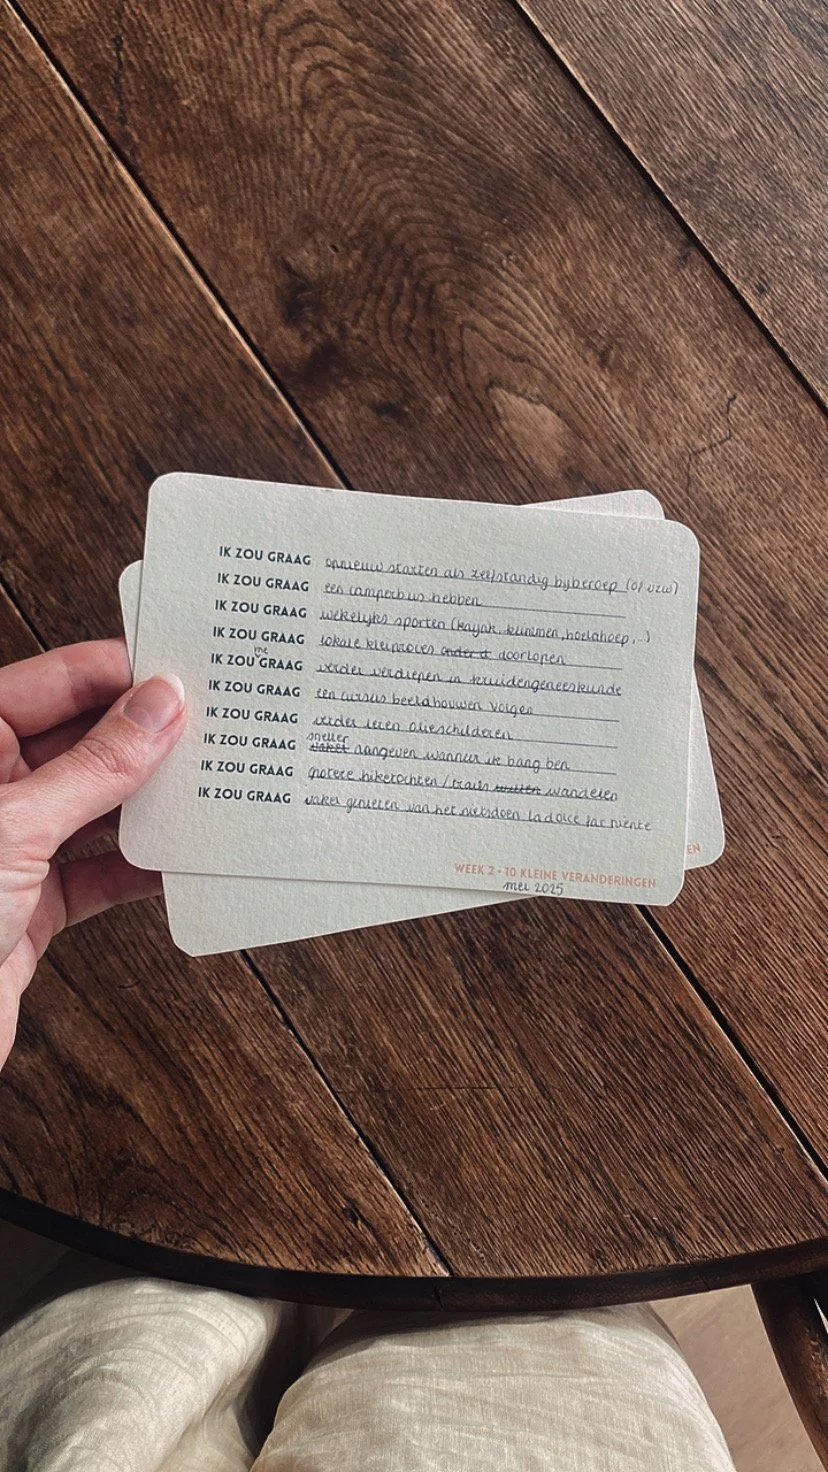 IK ZOU GRAAG opnieuw starten als zelfstandig bijberoep (of vzw)
IK ZOU GRAAG een camperbus hebben
IK ZOU GRAAG wekelijks sporten (kayak, klimmen, hoelahoep, ..)
IK ZOU GRAAG lokale kleiproces doorlopen
IK ZOU me GRAAG verder verdiepen in kruidengeneeskunde
IK ZOU GRAAG een cursus beeldhouwen volgen
IK ZOU GRAAG verder leren olieschilderen
IK ZOU GRAAG sneller aangeven wanneer ik bang ben
IK ZOU GRAAG grotere hiketochten / trails wandelen
IK ZOU GRAAG vaker genieten van het nietsdoen la dolce far niente
EN
WEEK 2 • 10 KLEINE VERANDERINGEN
mei 2025